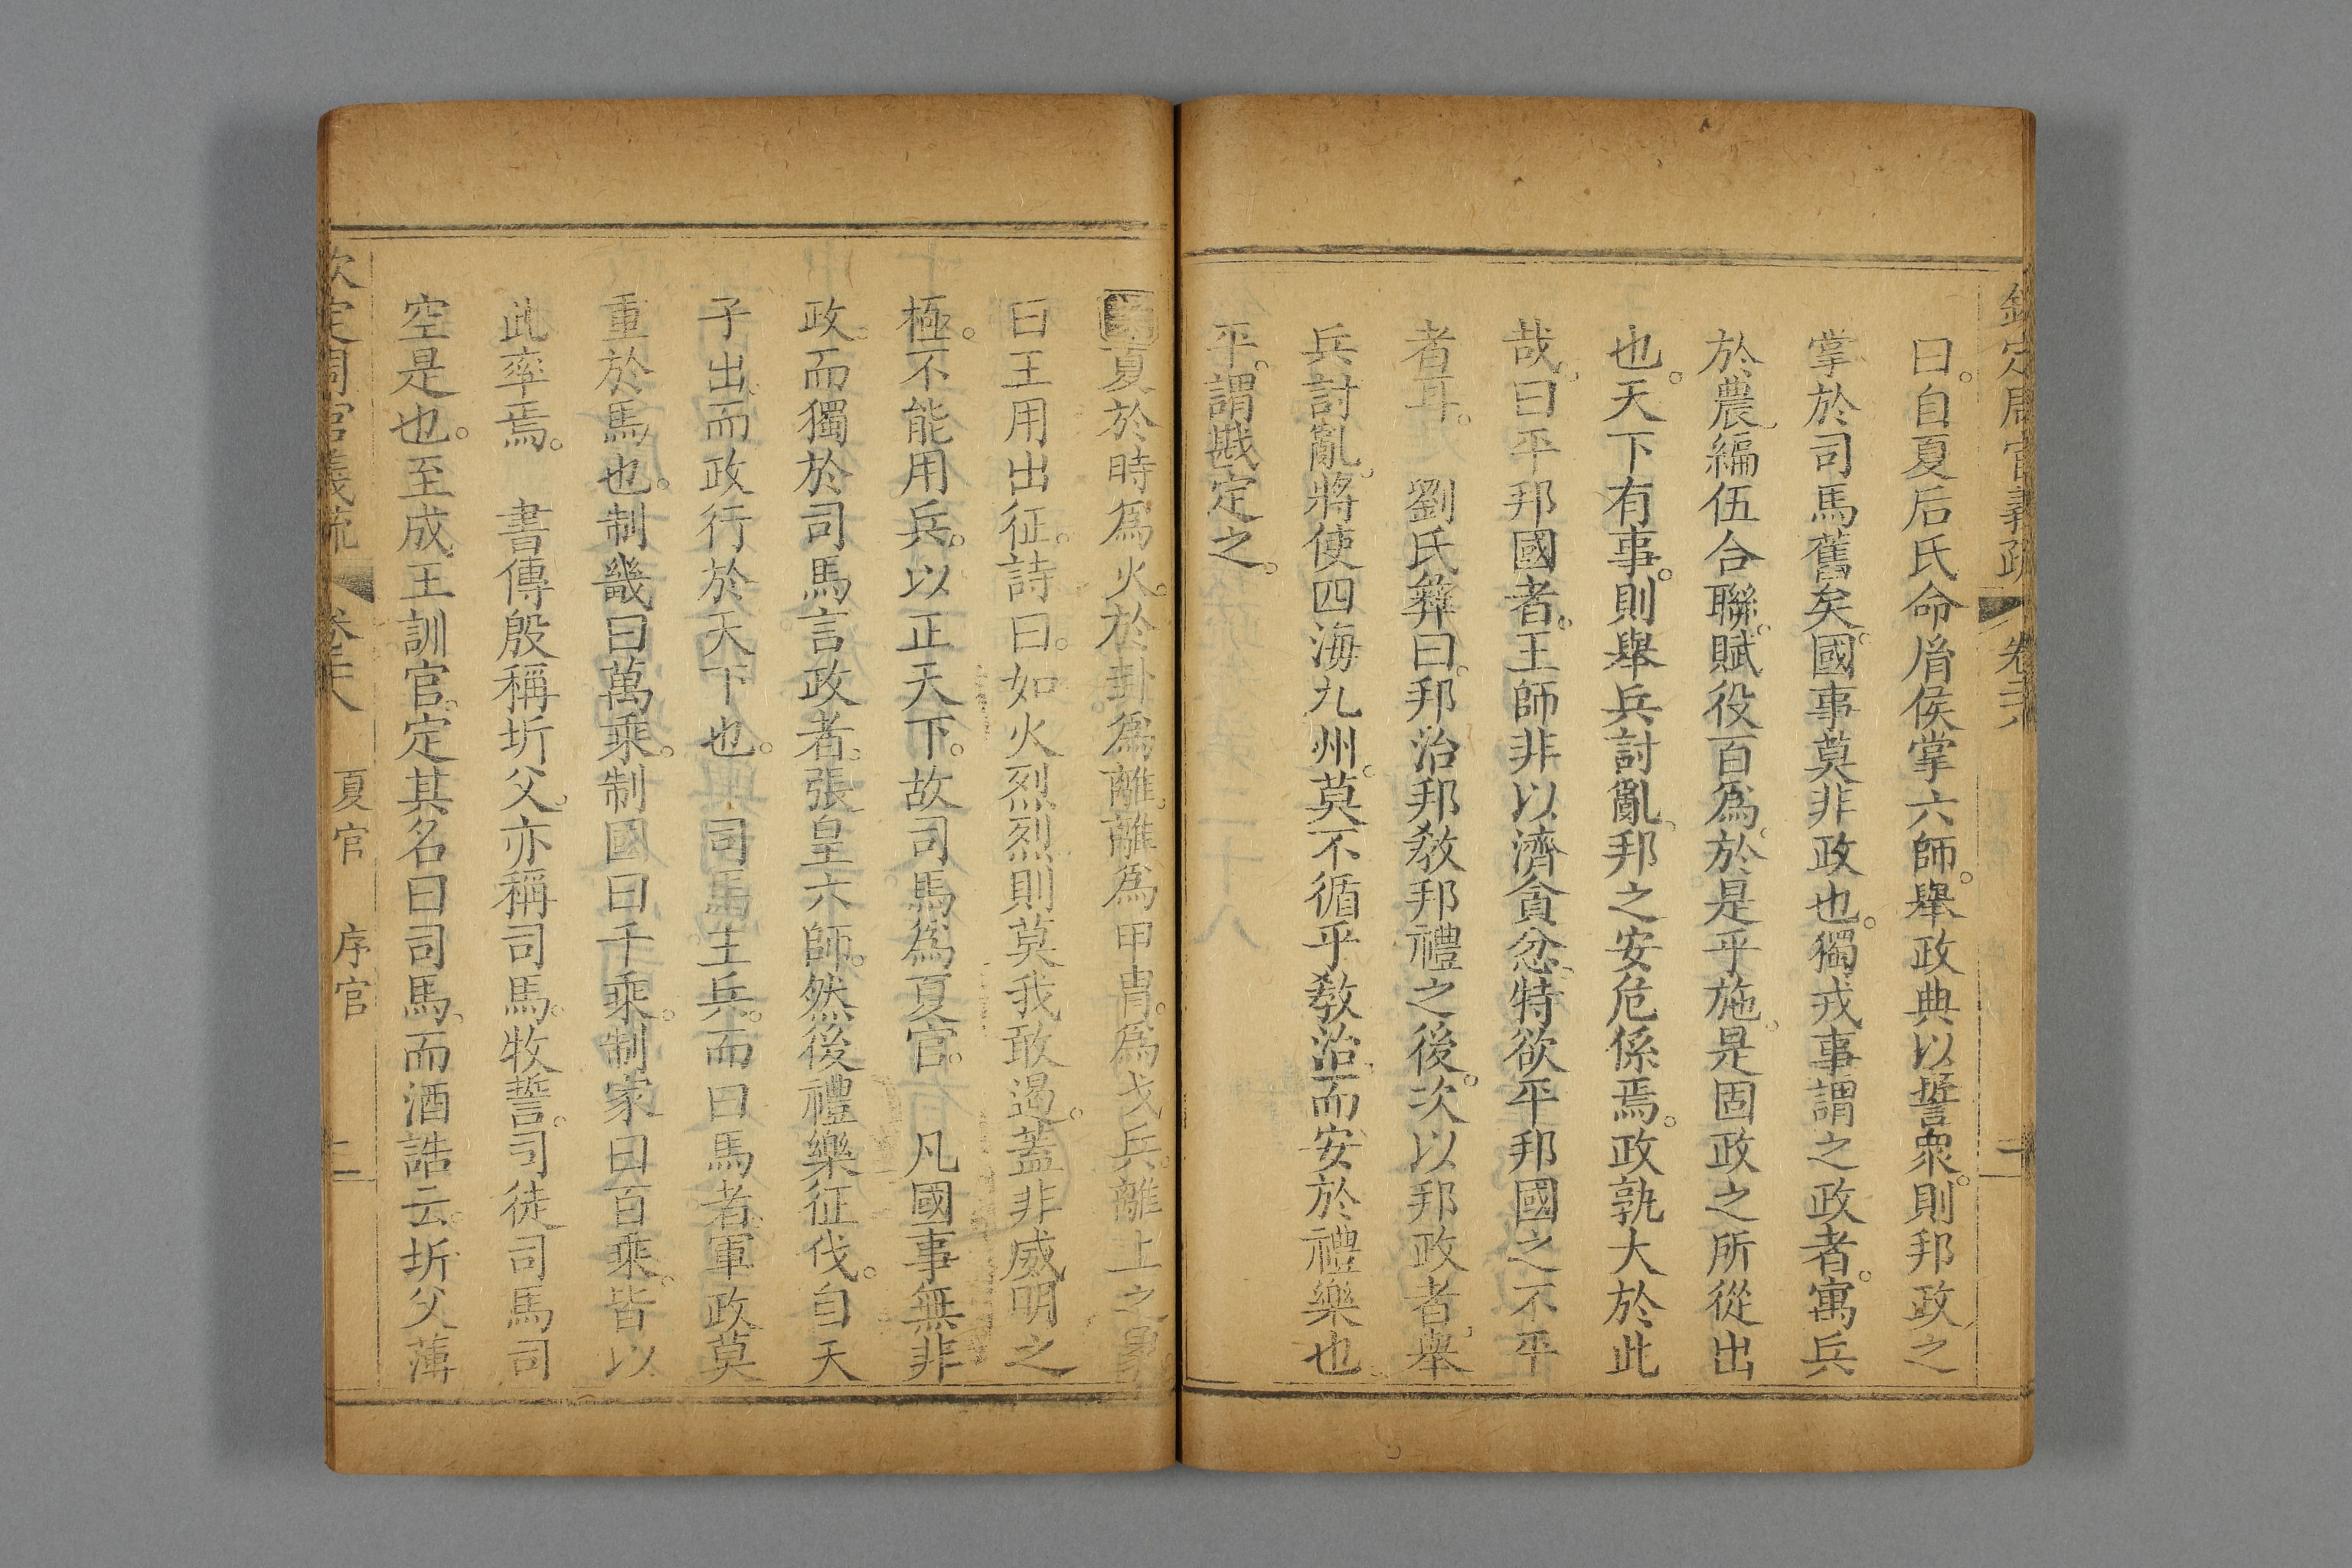 欽定周官義疏 卷二十八
曰。自夏后氏命胤侯掌六師。舉政典以誓衆。則邦政之
掌於司馬舊矣。國事莫非政也。獨戎事謂之政者。寓兵
於農。編伍合聯。賦役百為。於是乎施。是固政之所從出
也。天下有事。則舉兵討亂。邦之安危係焉。政孰大於此
哉。曰平邦國者。王師非以濟貪忿。特欲平邦國之不平
者耳。 劉氏彝曰。邦治邦教邦禮之後。次以邦政者。舉
兵討亂。將使四海九州。莫不循乎教治。而安於禮樂也
平。謂戡定之。
夏於時爲火。於卦爲離。離爲甲冑。爲戈兵。離上之象
曰王用出征。詩曰。如火烈烈則莫我敢遏。蓋非威明之
極。不能用兵。以正天下。故司馬為夏官。 凡國事無非
政。而獨於司馬言政者。張皇六師。然後禮樂征伐。自天
子出。而政行於天下也。 司馬主兵。而曰馬者。軍政莫
重於馬也。制畿曰萬乘。制國曰千乘。制家曰百乘。皆以
此率焉。 書傳殷稱圻父。亦稱司馬。牧誓。司徒司馬司
空是也。至成王訓官。定其名曰司馬。而酒誥云。圻父薄
欽定周官義疏 卷二十八 夏官 序官 二